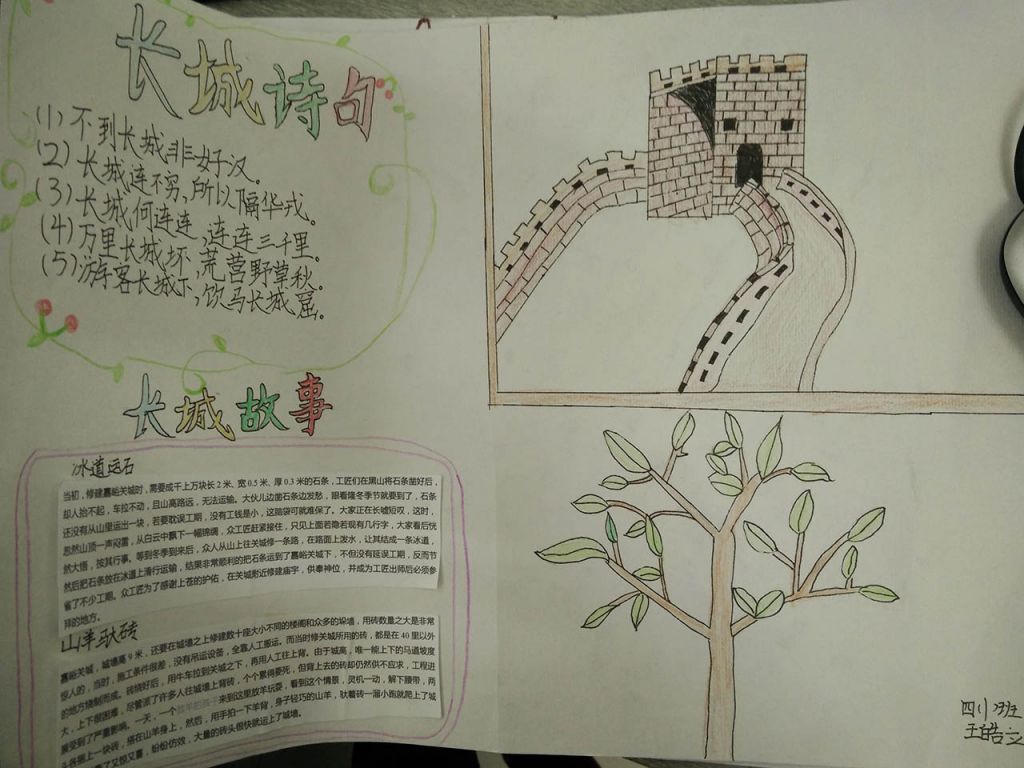 长城诗句
(1)不到长城非好汉。
(2)长城连不穷,所以隔华戎。
(3)长城何连连,连连三千里。
(4)万里长城坏,荒营野草秋。
(5)游客长城下,饮马长城窟。
长城故事
冰道运石
当初,修建嘉峪关城时,需要成千上万块长2米、宽0.5米、厚0.3米的石条,工匠们在黑山将石条凿好后,
却人抬不起,车拉不动,且山高路远,无法运输。大伙儿边凿石条边发愁,眼看隆冬季节就要到了,石条
还没有从山里运出一块,若要耽误工期,没有工钱是小,这脑袋可就难保了。大家正在长嘘短叹,这时,
忽然山顶一声闷雷,从白云中飘下一幅锦绸,众工匠赶紧接住,只见上面若隐若现有几行字,大家看后恍
然大悟,按其行事。等到冬季到来后,众人从山上往关城修一条路,在路面上泼水,让其结成一条冰道,
然后把石条放在冰道上滑行运输,结果非常顺利的把石条运到了嘉峪关城下,不但没有延误工期,反而节
省了不少工期。众工匠为了感谢上苍的护佑,在关城附近修建庙宇,供奉神位,并成为工匠出师后必须参
拜的地方。
山羊驮砖
嘉峪关城,城墙高9米,还要在城墙之上修建数十座大小不同的楼阁和众多的垛墙,用砖数量之大是非常
惊人的,当时,施工条件很差,没有吊运设备,全靠人工搬运。而当时修关城所用的砖,都是在40里以外
的地方烧制而成。砖烧好后,用牛车拉到关城之下,再用人工往上背。由于城高,唯一能上下的马道坡度
大,上下很困难,尽管派了许多人往城墙上背砖,个个累得要死,但背上去的砖却仍然供不应求,工程进
展受到了严重影响。一天,一个放羊的孩子来到这里放羊玩耍,看到这个情景,灵机一动,解下腰带,两
头各捆上一块砖,搭在山羊身上,然后,用手拍一下羊背,身子轻巧的山羊,驮着砖一溜小跑就爬上了城
了又惊又喜,纷纷仿效,大量的砖头很快就运上了城墙。
四川班
王皓立